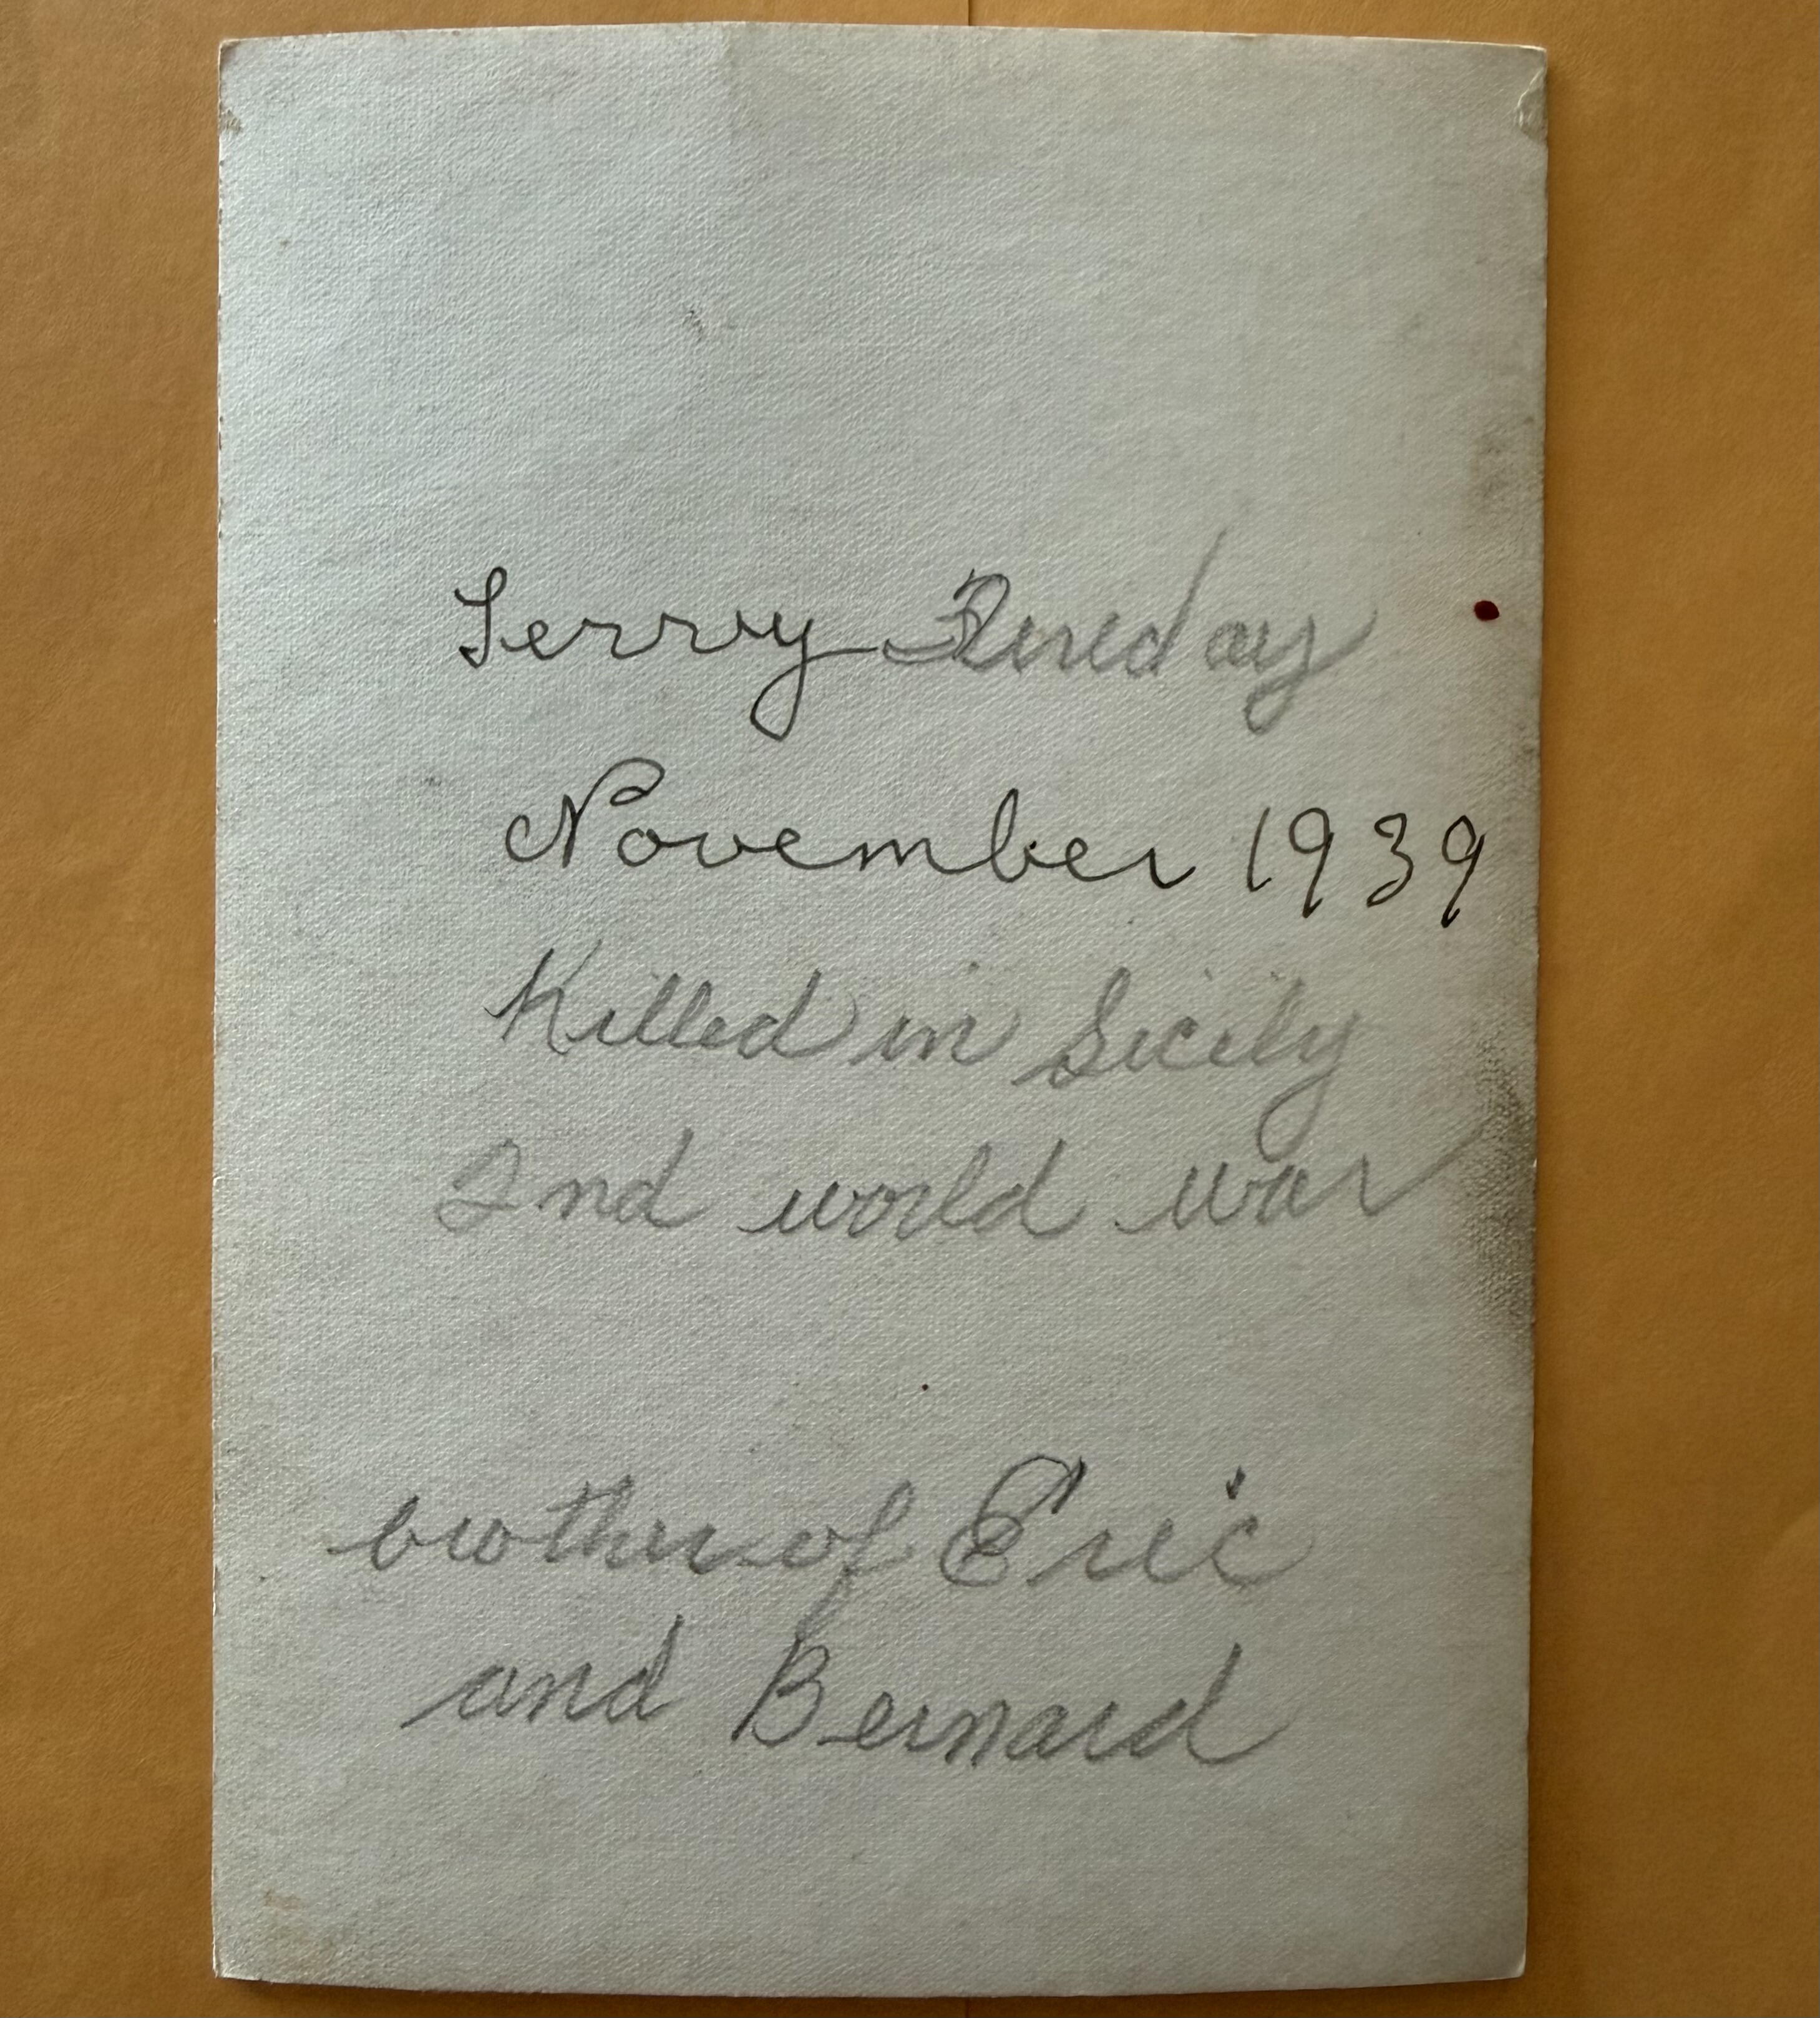 Terry Fereday
November 1939
Killed in Sicily
2nd world war
brother of Eric
and Bernard